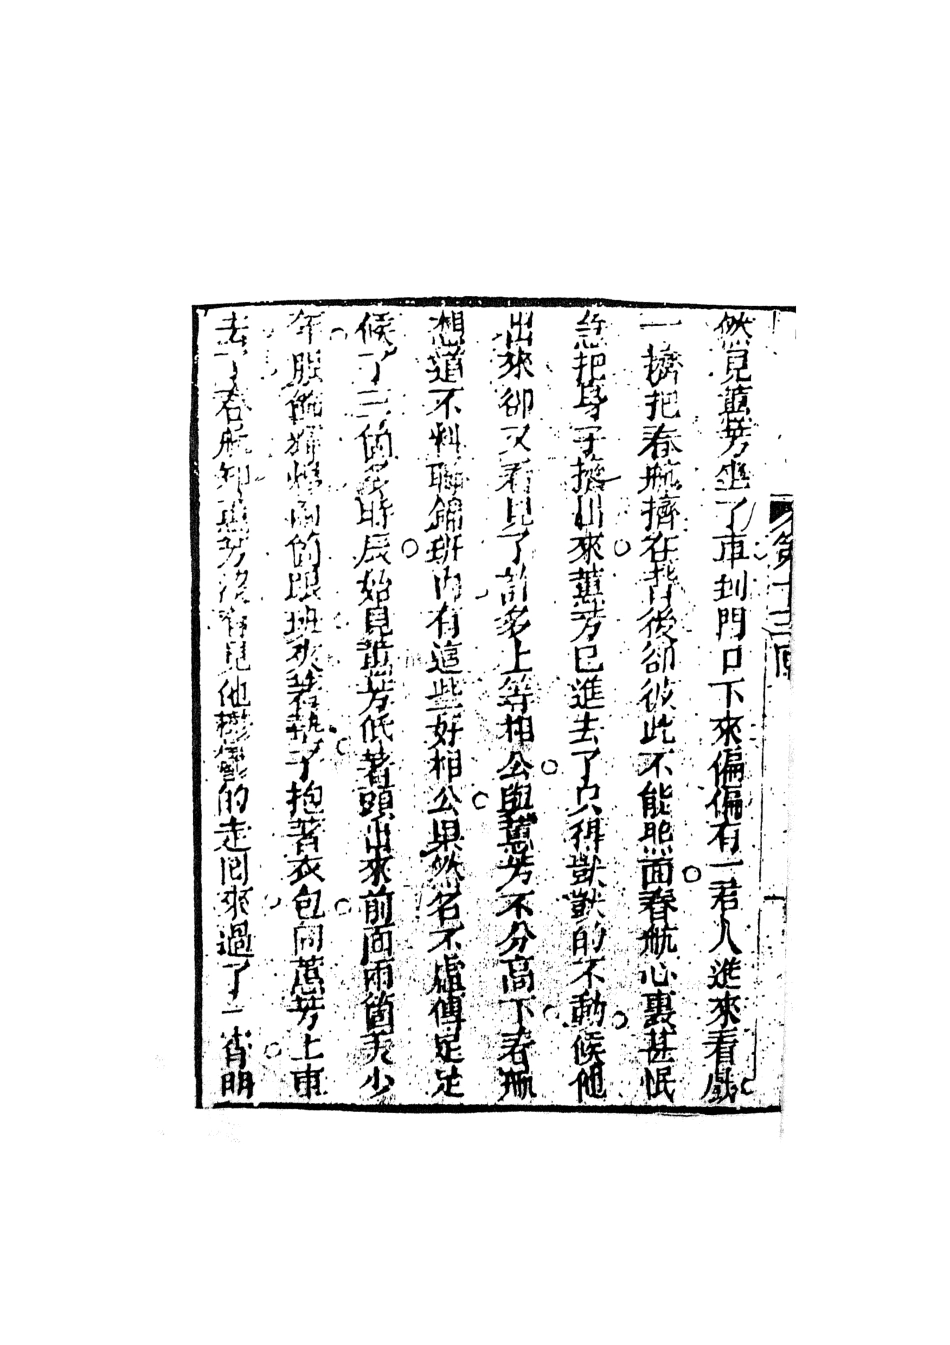 第十三回
然見蕙芳坐了車到門口下來偏偏有一君人進來看戲
一擠把春航擠在背後卻彼此不能照面春航心裏甚恨
急把身子擠出來蕙芳已進去了只得獃獃的不動候他
出來卻又看見了許多上等相公與蕙芳不分高下春航
想道不料聯錦班內有這些好相公果然名不虛傳足足
候了三個多時辰始見蕙芳低著頭出來前面兩箇美少
年服飾輝煌 的跟班夾著墊子抱著衣包同蕙芳上車
去了春航知蕙芳沒有見他鬱鬱的走回來過了一宵明